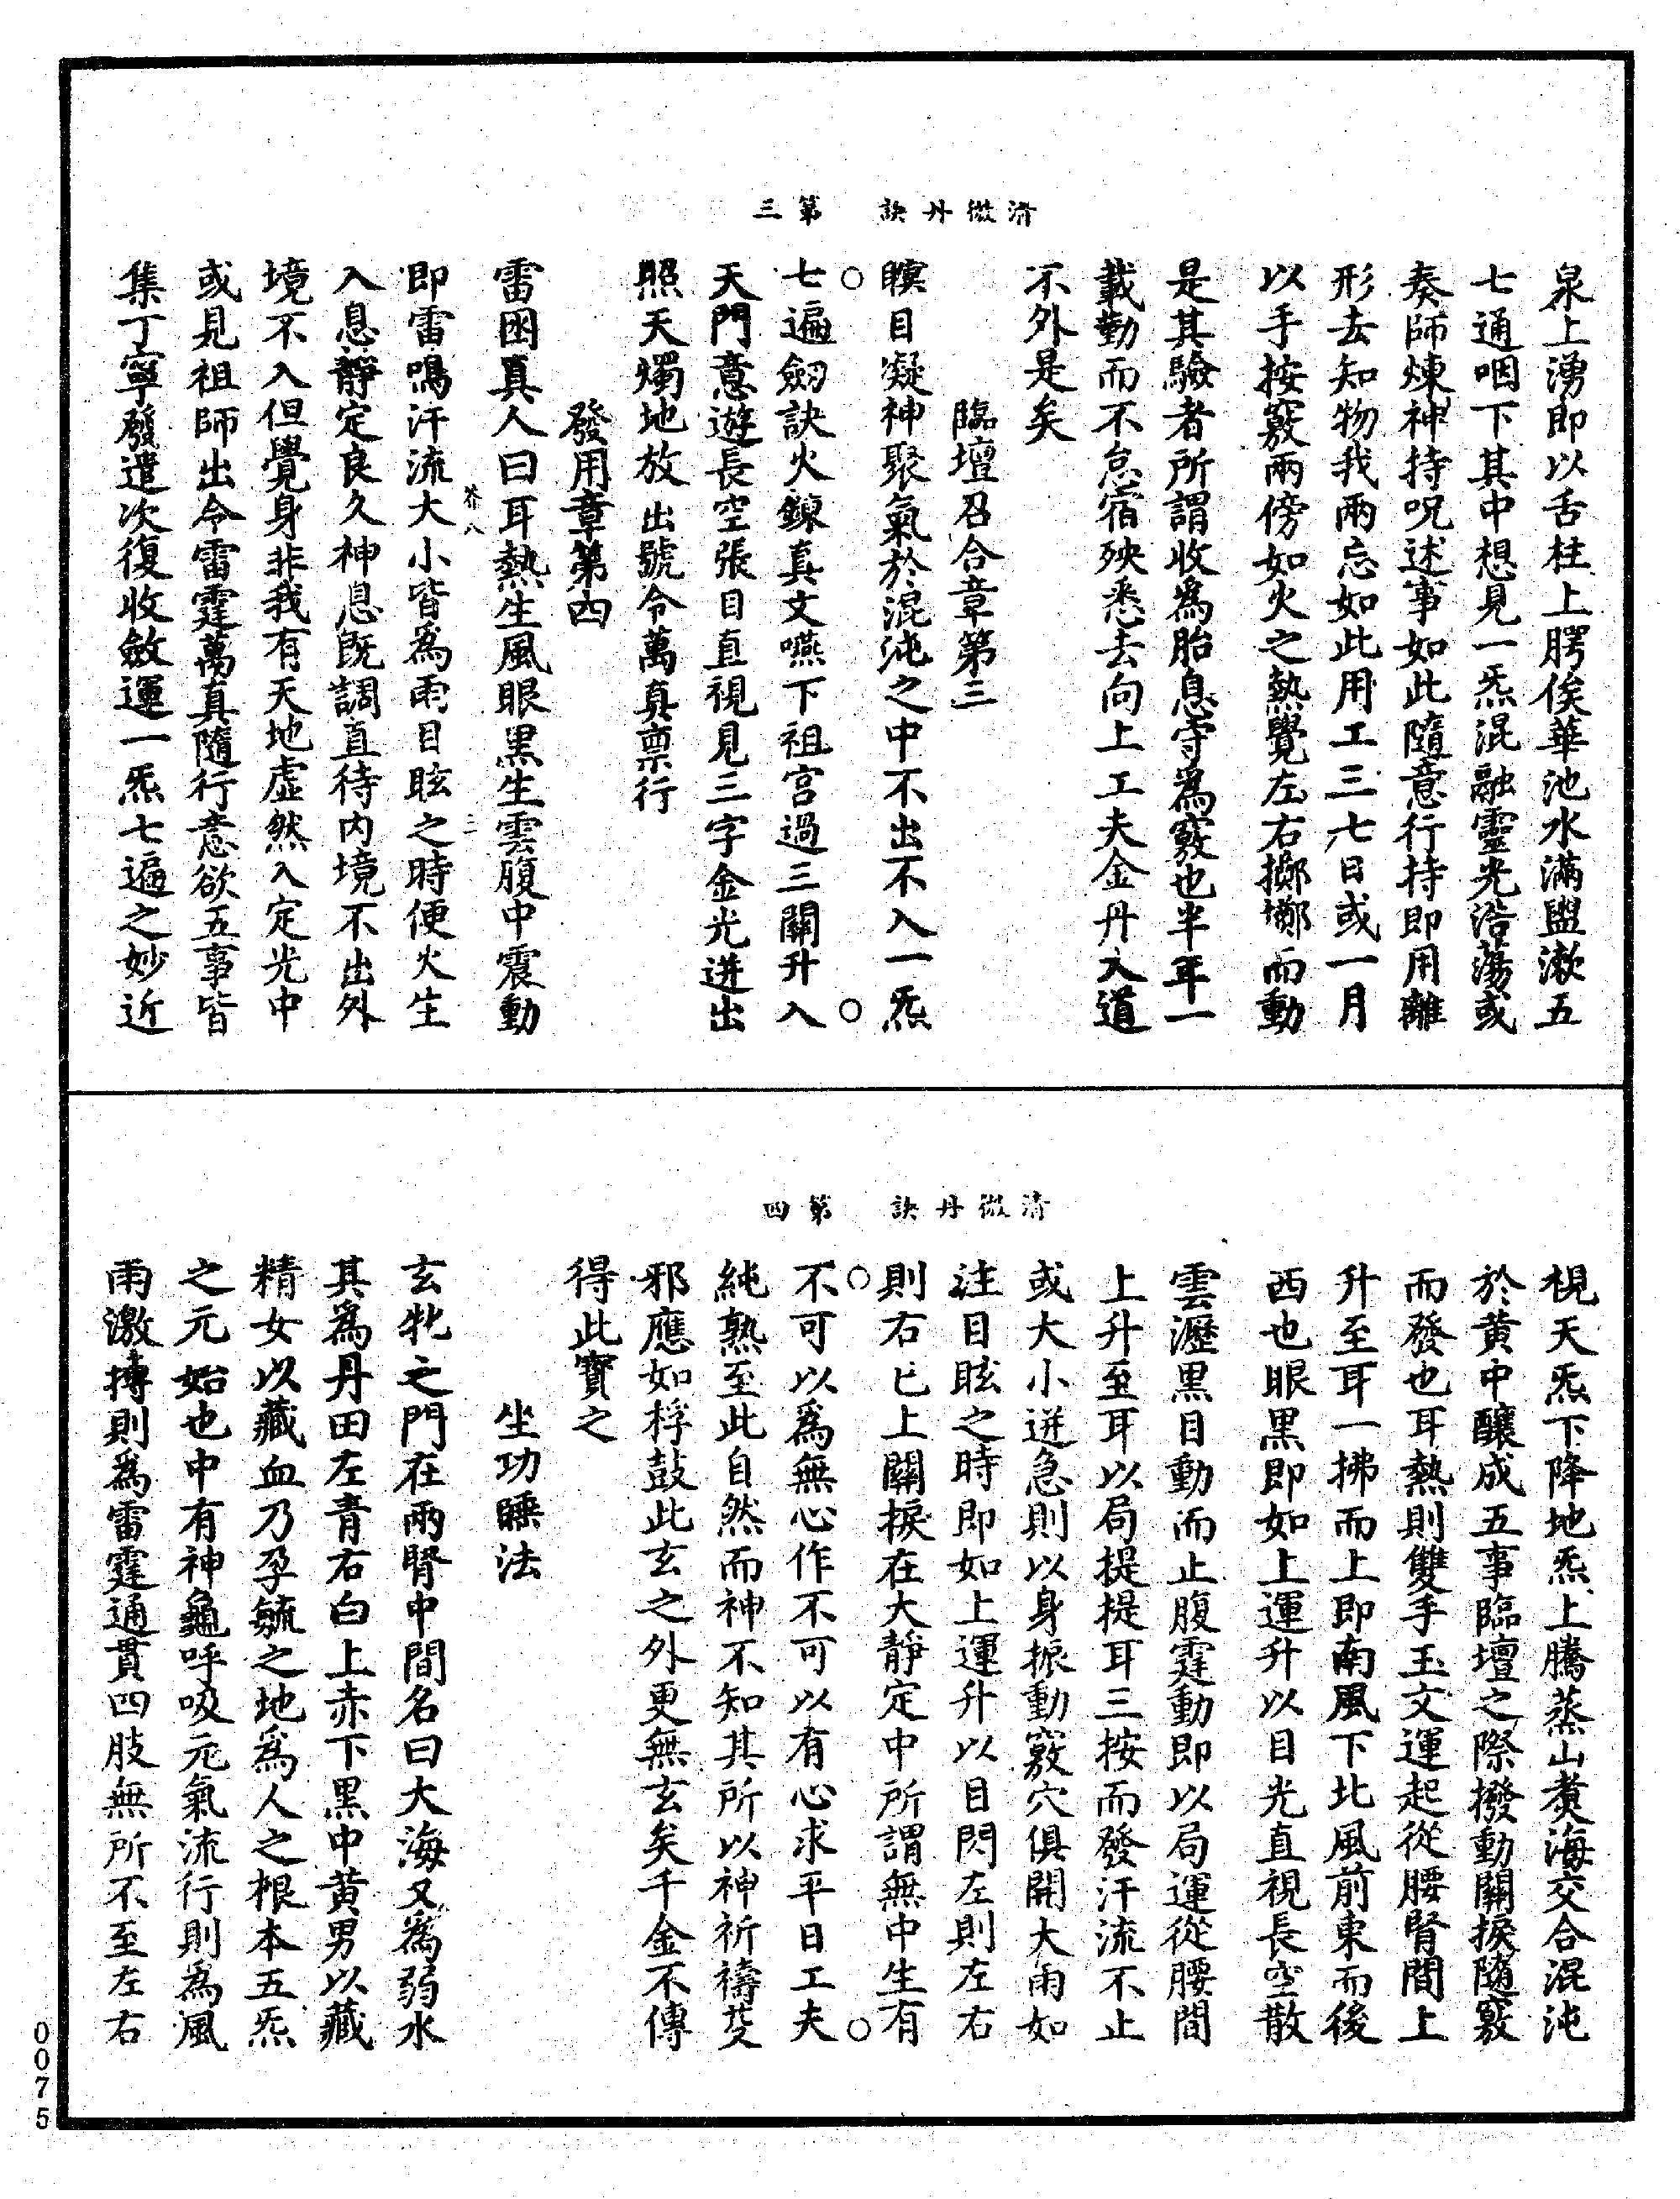 清微丹訣 第三
泉上湧即以舌柱上腭俟華池水滿盥漱五
七通咽下其中想見一炁混融靈光浩蕩或
奏師煉神持呪述事如此隨意行持即用離
形去知物我兩忘如此用工三七日或一月
以手按竅兩傍如火之熱覺左右擲擲而動
是其驗者所謂收為胎息守為竅也半年一
載勤而不怠宿殃悉去向上工夫金丹大道
不外是矣
臨壇召合章第三
瞑目凝神聚氣於混沌之中不出不入一炁
七遍劒訣火鍊真文嚥下祖宮過三關升入
天門意遊長空張目直視見三字金光迸出
照天燭地放出號令萬真禀行
發用章第四
雷囦真人曰耳熱生風眼黑生雲腹中震動
即雷鳴汗流大小皆為雨目眩之時便火生
芥八 二
入息靜定良久神息既調直待內境不出外
境不入但覺身非我有天地虛然入定光中
或見祖師出令雷霆萬真隨行意欲五事皆
集丁寧發遣次復收斂運一炁七遍之妙近
清微丹訣 第四
視天炁下降地炁上騰蒸山煑海交合混沌
於黃中釀成五事臨壇之際撥動關捩隨竅
而發也耳熱則雙手玉文運起從腰腎間上
升至耳一拂而上即南風下北風前東而後
西也眼黑即如上運升以目光直視長空散
雲瀝黑目動而止腹霆動即以局運從腰間
上升至耳以局提提耳三按而發汗流不止
或大小迸急則以身振動竅穴俱開大雨如
注目眩之時即如上運升以目閃左則左右
則右已上關捩在大靜定中所謂無中生有
不可以為無心作不可以有心求平日工夫
純熟至此自然而神不知其所以神祈禱㚆
邪應如桴鼓此玄之外更無玄矣千金不傳
得此寶之
坐功睡法
玄牝之門在兩腎中間名曰大海又為弱水
其為丹田左青右白上赤下黑中黃男以藏
精女以藏血乃孕毓之地為人之根本五炁
之元始也中有神龜呼吸元氣流行則為風
雨激搏則為雷霆通貫四肢無所不至左右
0075